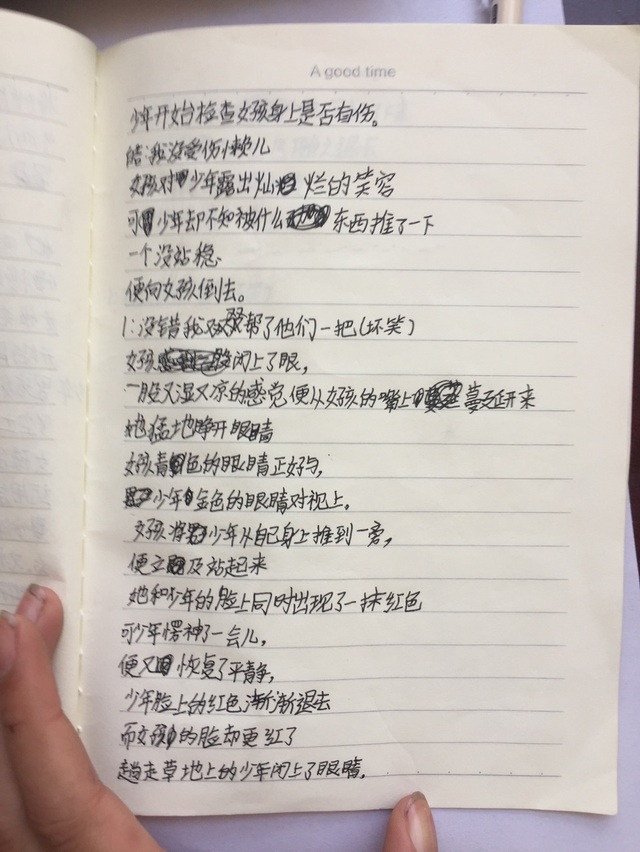 A good time
少年开始检查女孩身上是否有伤。
皓:我没受伤懒儿
女孩对少年露出灿烂的笑容
可少年却不知被什么东西推了一下
一个没站稳.
便向女孩倒去。
1:没错我双帮了他们一把(坏笑)
女孩闭上了眼,
一股又湿又凉的感觉便从女孩的嘴上蔓延开来
她猛地睁开眼睛
女孩青色的眼睛正好与,
少年金色的眼睛对视上。
女孩将少年从自己身上推到一旁,
便立及站起来
她和少年的脸上同时出现了一抹红色
可少年愣神了一会儿,
便又恢复了平静,
少年脸上的红色渐渐退去
而女孩的脸却更红了
趟走草地上的少年闭上了眼睛.